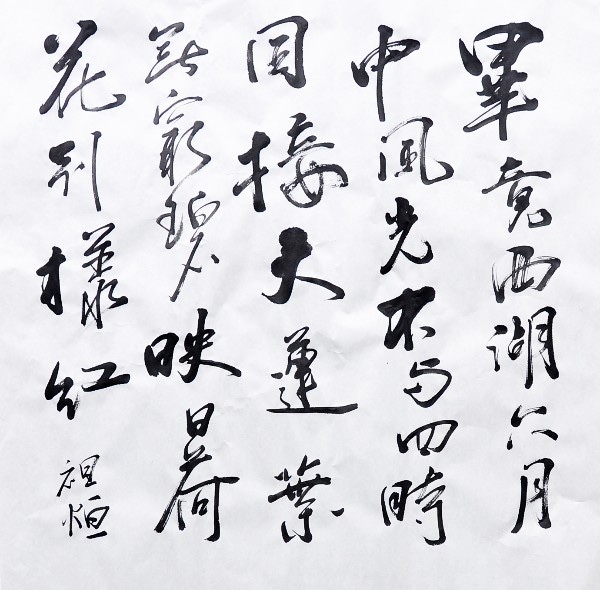 畢竟西湖六月
中風光不与四時
同接天蓮葉
無窮碧映日荷
花别樣红